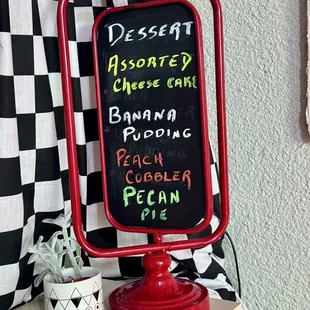 Dessert
Assorted
Cheese cake
Banana
Pudding
Peach
Cobbler
Pecan
Pie